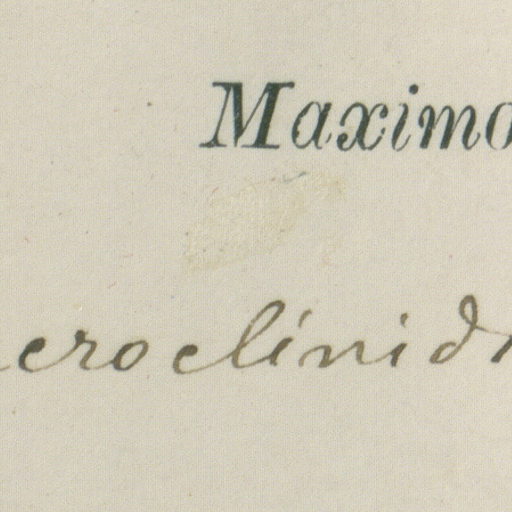 Maximo
eroclinidi